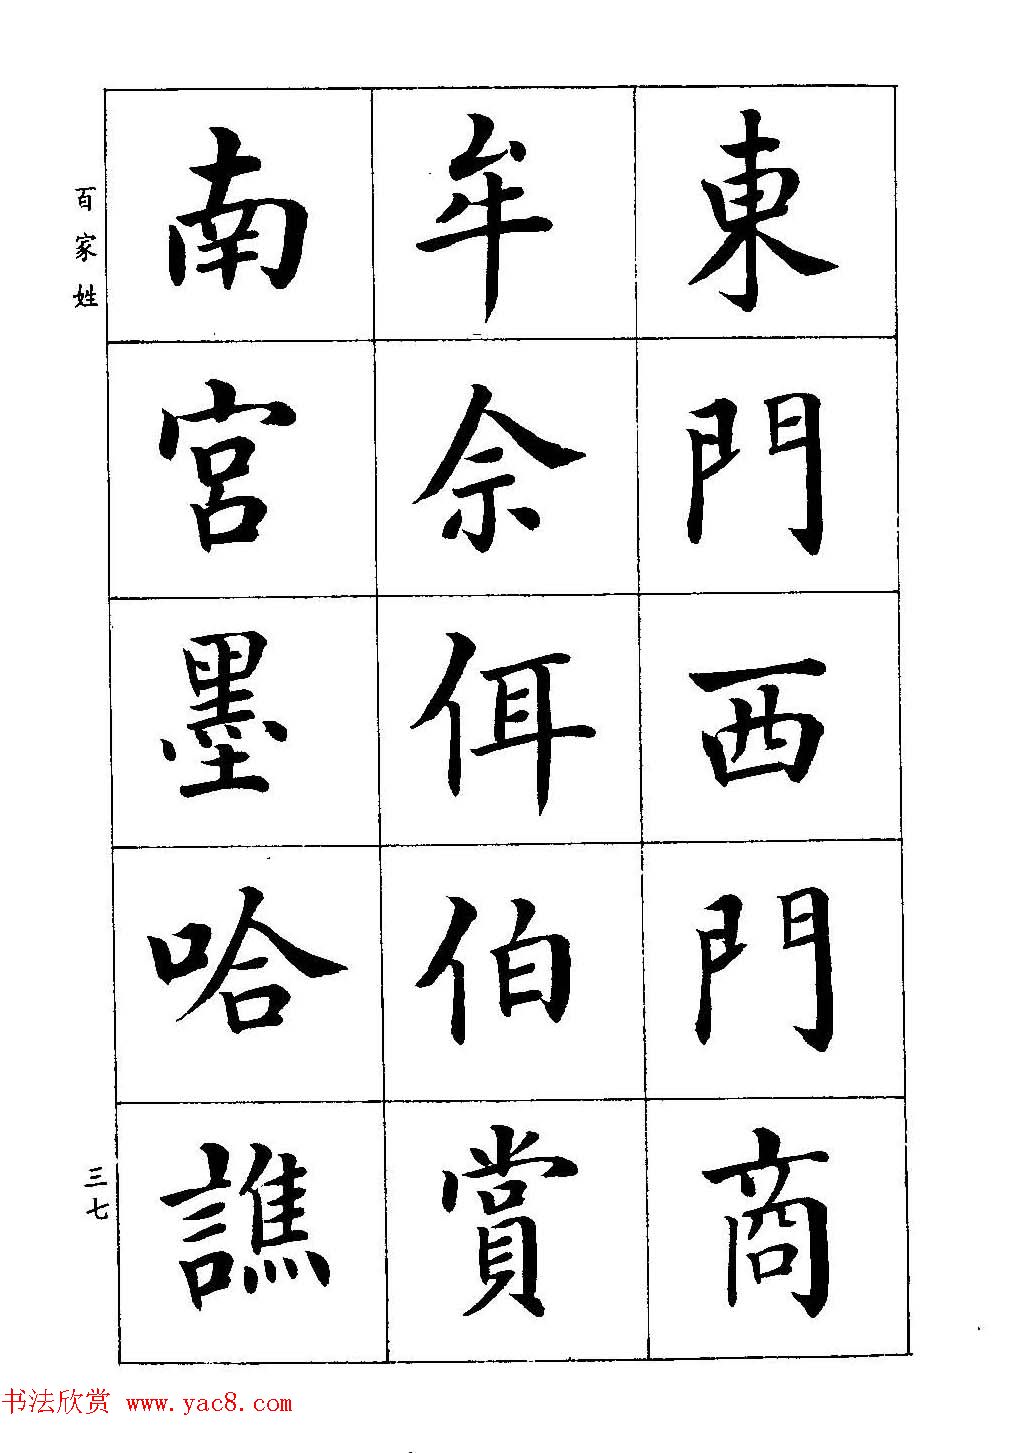 東門西門商
牟佘佴伯賞
南宮墨哈譙
百家姓
三七
书法欣赏 www.yac8.com